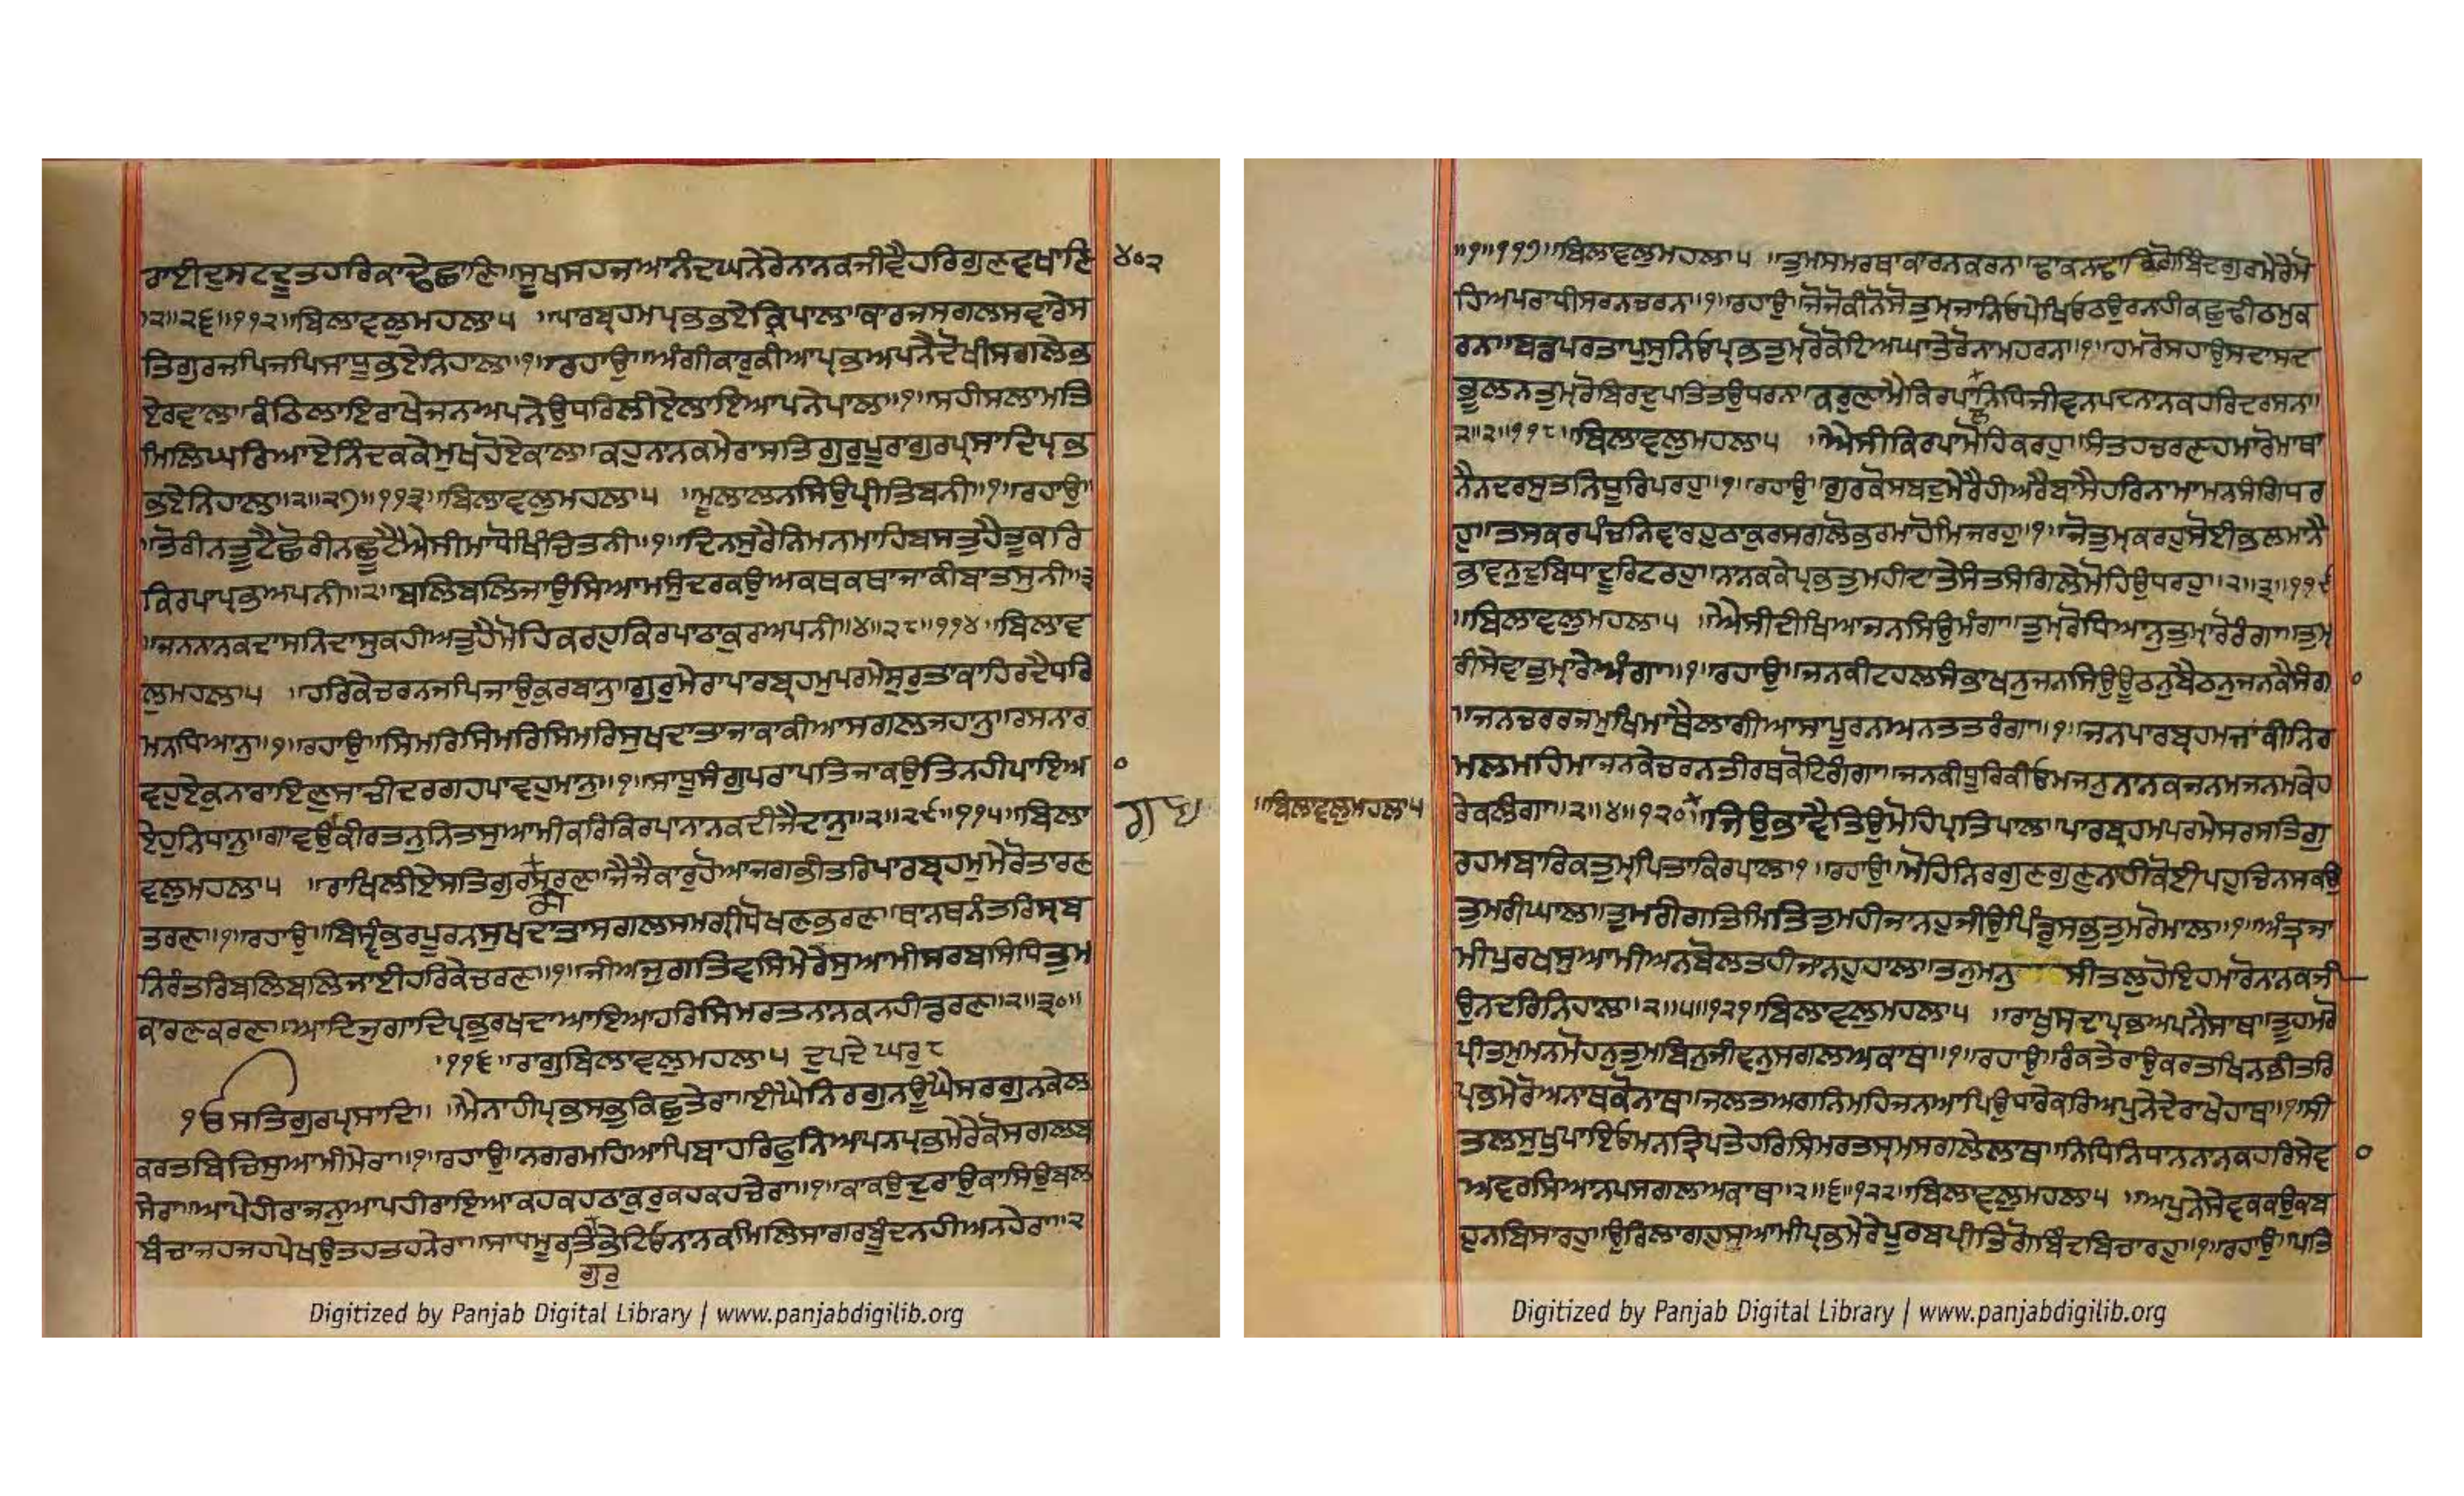 ਰਾਈਦੁਸਟਦੂਤਹਰਿਕਾਢੇਛਾਣਿ॥ਸੂਖਸਹਜਆਨੰਦਘਨੇਰੇਨਾਨਕਜੀਵੈਹਰਿਗੁਣਵਖਾਣਿ ੪੦੨
॥੨॥੨੬॥੧੧੨॥ਬਿਲਾਵਲੁਮਹਲਾ੫ ॥ਪਾਰਬ੍ਰਹਮਪ੍ਰਭਭਏਕ੍ਰਿਪਾਲਾ॥ਕਾਰਜਸਗਲਸਵਾਰੇਸ
ਤਿਗੁਰਜਪਿਜਪਿਸਾਧੂਭਏਨਿਹਾਲਾ॥੧॥ਰਹਾਉ॥ਅੰਗੀਕਾਰੁਕੀਆਪ੍ਰਭਅਪਨੈਦੋਖੀਸਗਲੇਭ
ਏਰਵਾਲਾ॥ਕੰਠਿਲਾਇਰਾਖੇਜਨਅਪਨੇਉਧਰਿਲੀਏਲਾਇਆਪਨੇਪਾਲਾ॥੧॥ਸਹੀਸਲਾਮਤਿ
ਮਿਲਿਘਰਿਆਏਨਿੰਦਕਕੇਮੁਖਹੋਏਕਾਲਾ॥ਕਹੁਨਾਨਕਮੇਰਾਸਤਿਗੁਰੁਪੂਰਾਗੁਰਪ੍ਰਸਾਦਿਪ੍ਰਭ
ਭਏਨਿਹਾਲਾ॥੨॥੨੭॥੧੧੩॥ਬਿਲਾਵਲੁਮਹਲਾ੫ ॥ਮੂਲਾਲਨਸਿਉਪ੍ਰੀਤਿਬਨੀ॥੧॥ਰਹਾਉ॥
॥ਤੋਰੀਨਤੂਟੈਛੋਰੀਨਛੂਟੈਐਸੀਮਾਧੋਖਿੰਚਿਤਨੀ॥੧॥ਦਿਨਸੁਰੈਨਿਮਨਮਾਹਿਬਸਤੁਹੈਤੂਕਰਿ
ਕਿਰਪਾਪ੍ਰਭਅਪਨੀ॥੨॥ਬਲਿਬਲਿਜਾਉਸਿਆਮਸੁੰਦਰਕਉਅਕਥਕਥਾਜਾਕੀਬਾਤਸੁਨੀ॥੩
॥ਜਨਨਾਨਕਦਾਸਨਿਦਾਸੁਕਹੀਅਤੁਹੈਮੋਹਿਕਰਹੁਕਿਰਪਾਠਾਕੁਰਅਪਨੀ॥੪॥੨੮॥੧੧੪॥ਬਿਲਾਵ
ਲੁਮਹਲਾ੫ ॥ਹਰਿਕੇਚਰਨਜਪਿਜਾਉਕੁਰਬਾਨੁ॥ਗੁਰੁਮੇਰਾਪਾਰਬ੍ਰਹਮੁਪਰਮੇਸੁਰੁਤਾਕਾਹਿਰਦੈਧਰਿ
ਮਨਧਿਆਨੁ॥੧॥ਰਹਾਉ॥ਸਿਮਰਿਸਿਮਰਿਸਿਮਰਿਸੁਖਦਾਤਾਜਾਕਾਕੀਆਸਗਲਜਹਾਨੁ॥ਰਸਨਾਰ
ਵਹੁਏਕੁਨਾਰਾਇਣੁਸਾਚੀਦਰਗਹਪਾਵਹੁਮਾਨੁ॥੧॥ਸਾਧੂਸੰਗੁਪਰਾਪਤਿਜਾਕਉਤਿਨਹੀਪਾਇਆ
ਏਹੁਨਿਧਾਨੁ॥ਗਾਵਉਕੀਰਤਨੁਨਿਤਸੁਆਮੀਕਰਿਕਿਰਪਾਨਾਨਕਦੀਜੈਦਾਨੁ॥੨॥੨੯॥੧੧੫॥ਬਿਲਾ
ਵਲੁਮਹਲਾ੫ ॥ਰਾਖਿਲੀਏਸਤਿਗੁਰਸਰਣ॥ਜੈਜੈਕਾਰੁਹੋਆਜਗਭੀਤਰਿਪਾਰਬ੍ਰਹਮੁਮੇਰੋਤਾਰਣ
ਤਰਣ॥੧॥ਰਹਾਉ॥ਬਿਸ੍ਵੰਭਰਪੂਰਨਸੁਖਦਾਤਾਸਗਲਸਮਗ੍ਰੀਪੋਖਣਭਰਣ॥ਥਾਨਥਨੰਤਰਿਸਰਬ
ਨਿਰੰਤਰਿਬਲਿਬਲਿਜਾਈਹਰਿਕੇਚਰਣ॥੧॥ਜੀਅਜੁਗਤਿਵਸਿਮੇਰੇਸੁਆਮੀਸਰਬਸਿਧਿਤੁਮ
ਕਾਰਣਕਰਣ॥ਆਦਿਜੁਗਾਦਿਪ੍ਰਭੁਰਖਦਾਆਇਆਹਰਿਸਿਮਰਤਨਾਨਕਨਹੀਡਰਣ॥੨॥੩੦॥
॥੧੧੬॥ਰਾਗੁਬਿਲਾਵਲੁਮਹਲਾ੫ ਦੁਪਦੇ ਘਰੁ੮
੧ੳਸਤਿਗੁਰਪ੍ਰਸਾਦਿ॥ ॥ਮੈਨਾਹੀਪ੍ਰਭਸਭੁਕਿਛੁਤੇਰਾ॥ਈਘੈਨਿਰਗੁਨਊਘੈਸਰਗੁਨਕੇਲ
ਕਰਤਬਿਚਿਸੁਆਮੀਮੇਰਾ॥੧॥ਰਹਾਉ॥ਨਗਰਮਹਿਆਪਿਬਾਹਰਿਫੁਨਿਆਪਨਪ੍ਰਭਮੇਰੇਕੋਸਗਲਬ
ਸੇਰਾ॥ਆਪੇਹੀਰਾਜਨੁਆਪਹੀਰਾਇਆਕਹਕਹਠਾਕੁਰੁਕਹਕਹਚੇਰਾ॥੧॥ਕਾਕਉਦੁਰਾਉਕਾਸਿਉਬਲ
ਬੰਚਾਜਹਜਹਪੇਖਉਤਹਤਹਨੇਰਾ॥ਸਾਧਮੂਰਤਿਭੇਟਿਓਨਾਨਕਮਿਲਿਸਾਗਰਬੂੰਦਨਹੀਅਨਹੇਰਾ॥੨
ਗੁਰੁ
Digitized by Panjab Digital Library | www.panjabdigilib.org
॥੧॥੧੧੭॥ਬਿਲਾਵਲੁਮਹਲਾ੫ ॥ਤੁਮਸਮਰਥਾਕਾਰਨਕਰਨ॥ਢਾਕਨਢਾਕਿਗੋਬਿਦਗੁਰਮੇਰੇਮੋ
ਹਿਅਪਰਾਧੀਸਰਨਚਰਨ॥੧॥ਰਹਾਉ॥ਜੋਜੋਕੀਨੋਸੋਤੁਮ੍ਰਜਾਨਿਓਪੇਖਿਓਠਉਰਨਹੀਕਛੁਢੀਠਮੁਕ
ਰਨ॥ਬਡਪਰਤਾਪੁਸੁਨਿਓਪ੍ਰਭਤੁਮ੍ਰਰੋਕੋਟਿਅਘਾਤੇਰੋਨਾਮਹਰਨ॥੧॥ਹਮਰੋਸਹਾਉਸਦਾਸਦ
ਭੂਲਨਤੁਮ੍ਰਰੋਬਿਰਦੁਪਤਿਤਉਧਰਨ॥ਕਰੁਣਾਮੈਕਿਰਪਾਨਿਧਿਜੀਵਨਪਦਨਾਨਕਹਰਿਦਰਸਨ॥
੨॥੨॥੧੧੮॥ਬਿਲਾਵਲੁਮਹਲਾ੫ ॥ਐਸੀਕਿਰਪਾਮੋਹਿਕਰਹੁ॥ਸੰਤਹਚਰਣਹਮਾਰੋਮਾਥਾ
ਨੈਨਦਰਸੁਤਨਿਧੂਰਿਪਰਹੁ॥੧॥ਰਹਾਉ॥ਗੁਰਕੋਸਬਦੁਮੇਰੈਹੀਅਰੈਬਾਸੈਹਰਿਨਾਮਾਮਨਸੰਗਿਧਰ
ਹੁ॥ਤਸਕਰਪੰਚਨਿਵਾਰਹੁਠਾਕੁਰਸਗਲੋਭਰਮਾਹੋਮਿਜਰਹੁ॥੧॥ਜੋਤੁਮ੍ਰਕਰਹੁਸੋਈਭਲਮਾਨੈ
ਭਾਵਨੁਦੁਬਿਧਾਦੂਰਿਟਰਹੁ॥ਨਾਨਕਕੇਪ੍ਰਭਤੁਮਹੀਦਾਤੇਸੰਤਸੰਗਿਲੇਮੋਹਿਉਧਰਹੁ॥੨॥੩॥੧੧੯
॥ਬਿਲਾਵਲੁਮਹਲਾ੫ ॥ਐਸੀਦੀਖਿਆਜਨਸਿਉਮੰਗਾ॥ਤੁਮ੍ਰਰੋਧਿਆਨੁਤੁਮ੍ਰਾਰੋਰੰਗਾ॥ਤੁਮ੍ਰ
ਰੀਸੇਵਾਤੁਮ੍ਰਾਰੇਅੰਗਾ॥੧॥ਰਹਾਉ॥ਜਨਕੀਟਹਲਸੰਭਾਖਨੁਜਨਸਿਉਊਠਨੁਬੈਠਨੁਜਨਕੈਸੰਗਾ
॥ਜਨਚਰਰਜਮੁਖਿਮਾਥੈਲਾਗੀਆਸਾਪੂਰਨਅਨਤਤਰੰਗਾ॥੧॥ਜਨਪਾਰਬ੍ਰਹਮਜਾਕੀਨਿਰ
ਮਲਮਹਿਮਾਜਨਕੇਚਰਨਤੀਰਥਕੋਟਿਗੰਗਾ॥ਜਨਕੀਧੂਰਿਕੀਓਮਜਨੁਨਾਨਕਜਨਮਜਨਮਕੇਹ
॥ਬਿਲਾਵਲੁਮਹਲਾ੫ ਰੇਕਲੰਗਾ॥੨॥੪॥੧੨੦॥ਜਿਉਭਾਵੈਤਿਉਮੋਹਿਪ੍ਰਤਿਪਾਲ॥ਪਾਰਬ੍ਰਹਮਪਰਮੇਸਰਸਤਿਗੁ
ਰਹਮਬਾਰਿਕਤੁਮ੍ਰਪਿਤਾਕਿਰਪਾਲ॥੧॥ਰਹਾਉ॥ਮੋਹਿਨਿਰਗੁਣਗੁਣੁਨਾਹੀਕੋਈਪਹੁਚਿਨਸਾਕਉ
ਤੁਮਰੀਘਾਲ॥ਤੁਮਰੀਗਤਿਮਿਤਿਤੁਮਹੀਜਾਨਹੁਜੀਉਪਿੰਡੁਸਭੁਤੁਮਰੋਮਾਲ॥੧॥ਅੰਤਰਜਾ
ਮੀਪੁਰਖਸੁਆਮੀਅਨਬੋਲਤਹੀਜਾਨਹੁਹਾਲ॥ਤਨੁਮਨੁ ਸੀਤਲੁਹੋਇਹਮਾਰੋਨਾਨਕਜੀ
ਉਨਦਰਿਨਿਹਾਲ॥੨॥੫॥੧੨੧॥ਬਿਲਾਵਲੁਮਹਲਾ੫ ॥ਰਾਖੁਸਦਾਪ੍ਰਭਅਪਨੈਸਾਥ॥ਤੂਹਮਰੋ
ਪ੍ਰੀਤਮੁਮਨਮੋਹਨੁਤੁਮਬਿਨੁਜੀਵਨੁਸਗਲਅਕਾਥ॥੧॥ਰਹਾਉ॥ਰੰਕਤੇਰਾਉਕਰਤਖਿਨਭੀਤਰਿ
ਪ੍ਰਭਮੇਰੋਅਨਾਥਕੋਨਾਥ॥ਜਲਤਅਗਨਿਮਹਿਜਨਆਪਿਉਧਾਰੇਕਰਿਅਪੁਨੇਦੇਰਾਖੇਹਾਥ॥੧॥ਸੀ
ਤਲਸੁਖੁਪਾਇਓਮਨਤ੍ਰਿਪਤੇਹਰਿਸਿਮਰਤਸ੍ਰਮਸਗਲੇਲਾਥ॥ਨਿਧਿਨਿਧਾਨਨਾਨਕਹਰਿਸੇਵ
ਅਵਰਸਿਆਨਪਸਗਲਅਕਾਥ॥੨॥੬॥੧੨੨॥ਬਿਲਾਵਲੁਮਹਲਾ੫ ॥ਅਪੁਨੇਸੇਵਕਕਉਕਬ
ਹੁਨਬਿਸਾਰਹੁ॥ਉਰਿਲਾਗਹੁਸੁਆਮੀਪ੍ਰਭਮੇਰੇਪੂਰਬਪ੍ਰੀਤਿਗੋਬਿੰਦਬਿਚਾਰਹੁ॥੧॥ਰਹਾਉ॥ਪਤਿ
Digitized by Panjab Digital Library | www.panjabdigilib.org